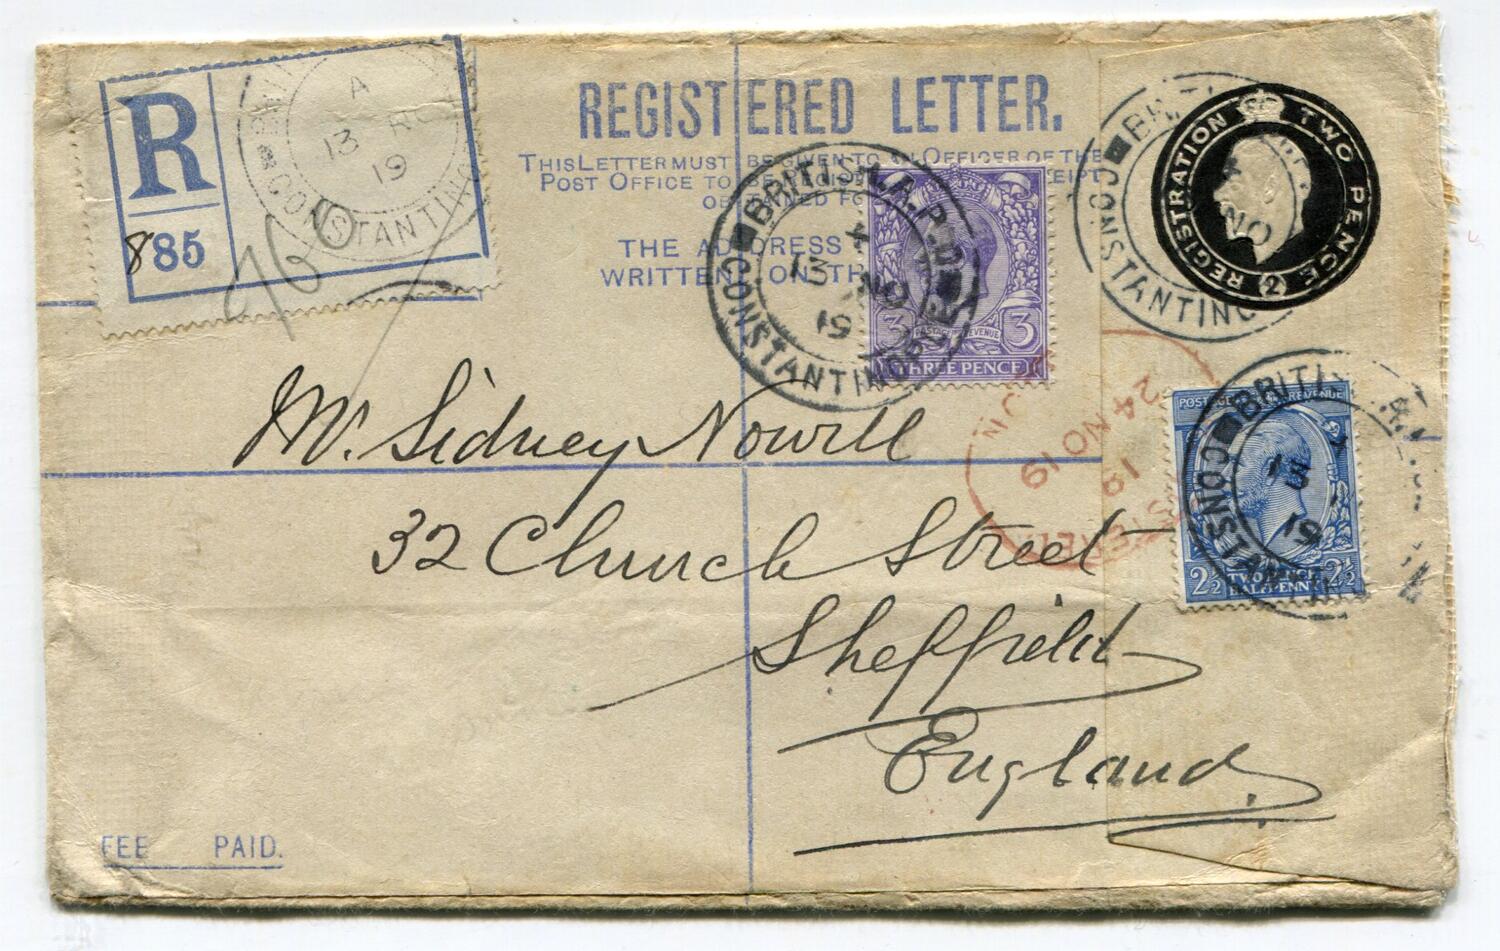 R
885
A
13 NO
19
CONSTANTINO
960
REGISTERED LETTER.
THIS LETTER MUST BE GIVEN TO AN OFFICER OF THE
POST OFFICE TO BE REGIS
THE ADDRESS
WRITTEN ON TH
BRITISH A.P.O.
4
13 NO
19
CONSTANTINOPLE
POSTAGE REVENUE
3 3
THREE PENCE
REGISTRATION TWO PENCE
2
BRITI
4
NO
CONSTANTINO
REGISTERED
19
24 NO 19
LON
POSTAGE REVENUE
2½ TWO PENCE 2½
HALFPENNY
BRITI A.
13
19
CONSTANTIN
Mr. Sidney Nowill
32 Church Street
Sheffield
England.
FEE PAID.